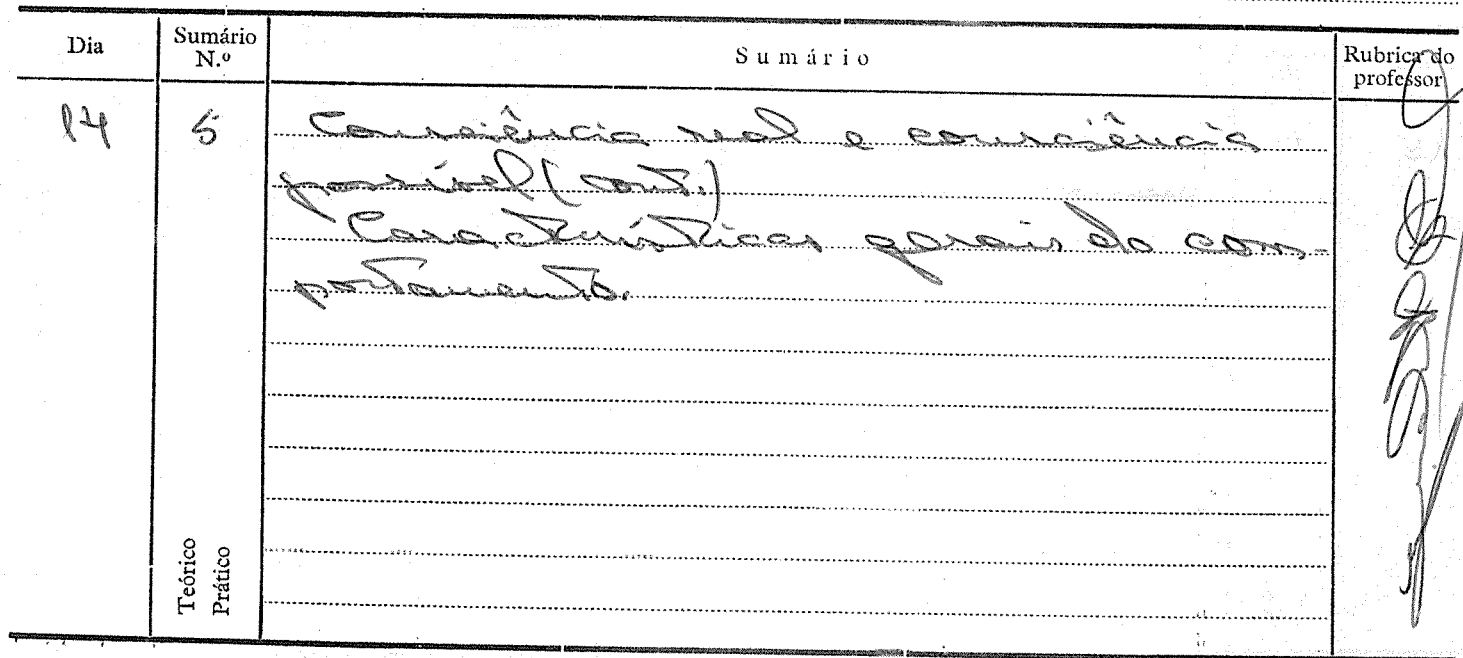 Dia
Sumário N.º
Sumário
Rubrica do professor
14
5
Consciência real e consciência
possível (cont.)
Características gerais do com-
portamento.
Teórico
Prático